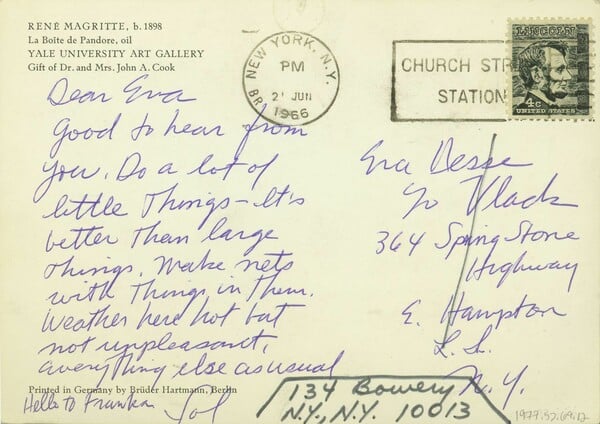 RENÉ MAGRITTE, b. 1898
La Boîte de Pandore, oil
YALE UNIVERSITY ART GALLERY
Gift of Dr. and Mrs. John A. Cook
NEW YORK, N.Y.
PM
21 JUN
1966
CHURCH STR
STATION
LINCOLN
4c
UNITED STATES
Dear Eva
Good to hear from
you. Do a lot of
little things - It's
better than large
things. Make nets
with things in them.
Weather here hot but
not unpleasant,
everything else as usual
Printed in Germany by Brüder Hartmann, Berlin
Hello to
Sol
Eva Hesse
c/o
364 Spring Stone
Highway
E. Hampton
L. I.
N.Y.
134 Bowery
N.Y., N.Y. 10013